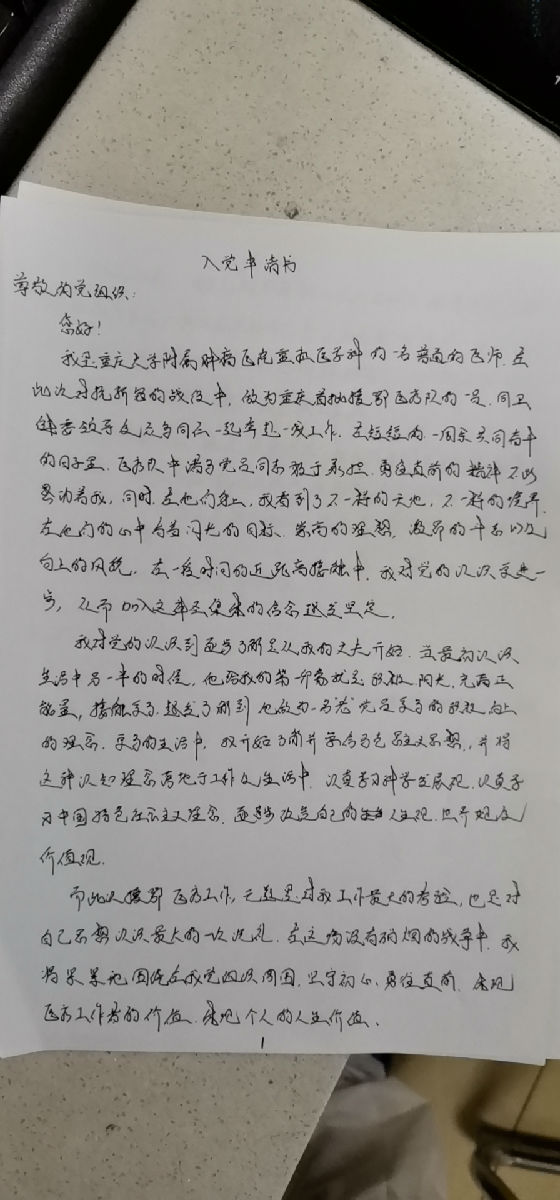 入党申请书
尊敬的党组织：
您好！
我是重庆大学附属肿瘤医院重症医学科的一名普通的医师。在
此次对抗新冠的战役中，做为重庆首批援鄂医疗队的一员，同卫
健委领导及众多同仁一起奔赴一线工作。在短短的一周余共同奋斗
的日子里，医疗队中诸多党员同志敢于承担、勇往直前的精神不断
影响着我，同时，在他们身上，我看到了不一样的天地，不一样的境界，
在他们的心中有着闪光的目标、崇高的理想、激昂的斗志以及
向上的风貌。在一段时间的近距离接触中，我对党的认识更进一
步，从而加入这个先进集体的信念越发坚定。
我对党的认识到逐步了解是从我的丈夫开始。在最初认识
生活中另一半的时候，他给我的第一印象就是积极、阳光、充满正
能量，接触多了，越发了解到他做为一名老党员享有的积极向上
的理念。平日的生活中，我开始了解并学习马克思主义思想，并将
这种认知理念落地于工作及生活中，认真学习科学发展观，认真学
习中国特色社会主义理念，逐步改造自己的人生观、世界观及
价值观。
而此次援鄂医疗工作，无疑是对我工作最大的考验，也是对
自己思想认识最大的一次洗礼。在这场没有硝烟的战争中，我
将紧紧地团结在我党组织周围，坚守初心、勇往直前，实现
医疗工作者的价值，实现个人的人生价值。
1